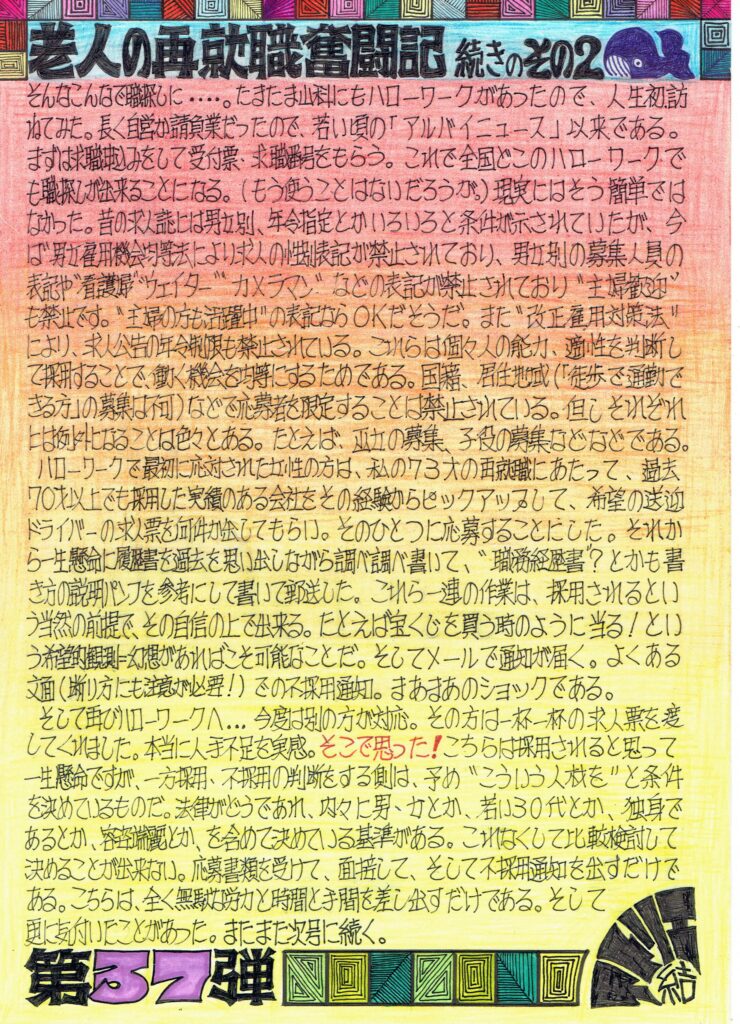 老人の再就職奮闘記 続きのその2
そんなこんなで職探しに・・・・。たまたま山科にもハローワークがあったので、人生初訪
ねてみた。長く自営か請負業だったので、若い頃の「アルバイニュース」以来である。
まずは求職申込みをして受付票・求職番号をもらう。これで全国どこのハローワークで
も職探しが出来ることになる。(もう使うことはないだろうが。)現実にはそう簡単では
なかった。昔の求人誌には男女別、年令指定とかいろいろと条件が示されていたが、今
ば"男女雇用機会均等法により求人の性別表記が禁止されており、男女別の募集人員の
表記や"看護婦""ウェイター""カメラマン"などの表記が禁止されており"主婦歓迎"
も禁止です。"主婦の方も活躍中"の表記なら OKだそうだ。また"改正雇用対策法"
により、求人公告の年令制限も禁止されている。これらは個々人の能力、適性を判断し
て採用することで、働く機会を均等にするためである。国籍、居住地域(「徒歩で通勤で
きる方」の募集は不可)などで応募者を限定することは禁止されている。但しそれぞれ
には例外になることは色々とある。たとえば、巫女の募集、子役の募集などなどである。
ハローワークで最初に応対された女性の方は、私の73才の再就職にあたって、過去
70才以上でも採用した実績のある会社をその経験からピックアップして、希望の送迎
ドライバーの求人票を何件か出してもらい。そのひとつに応募することにした。それか
ら一生懸命に履歴書を過去を思い出しながら調べ調べ書いて、"職務経歴書"?とかも書
き方の説明パンフを参考にして書いて郵送した。これら一連の作業は、採用されるとい
う当然の前提で、その自信の上で出来る。たとえば宝くじを買う時のように当る!とい
う希望的観測=幻想があればこそ可能なことだ。そしてメールで通知が届く。よくある
文面(断り方にも注意が必要!)での不採用通知。まあまあのショックである。
そして再びハローワークへ...今度は別の方が対応。その方は一杯一杯の求人票を渡
してくれました。本当に人手不足を実感。そこで思った!こちらは採用されると思って
一生懸命ですが、一方採用・不採用の判断をする側は、予め"こういう人材を"と条件
を決めているものだ。法律がどうであれ、内々に男・女とか、若い30代とか、独身で
あるとか、容姿端麗とか、を含めて決めている基準がある。これなくして比較検討して
決めることが出来ない。応募書類を受けて、面接して、そして不採用通知を出すだけで
ある。こちらは、全く無駄な労力と時間と手間を差し出すだけである。そして
更に気付いたことがあった。またまた次号に続く。
第37弾
結